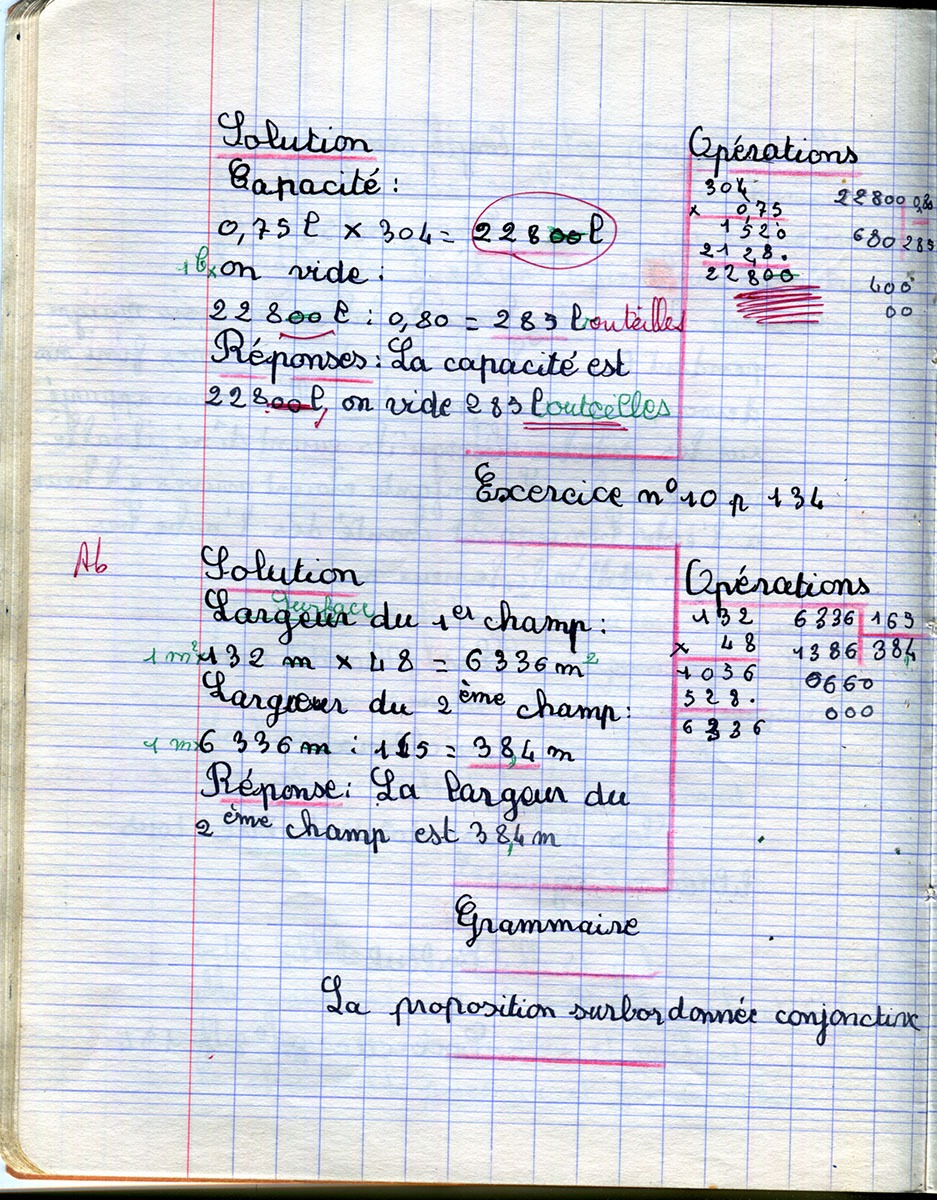 Solution
Capacité :
0,75 l × 304 = 22800 l
1 l × on vide :
22800 l : 0,80 = 285 bouteilles
Réponses : La capacité est
22800 l, on vide 285 bouteilles
Opérations
304
× 0,75
1520
2128.
22800
22800 0,80
680 285
400
00
Excercice n° 10 p 134
Ab
Solution
Surface
Largeur du 1er champ :
1 m² × 132 m × 48 = 6336 m²
Largeur du 2ème champ :
1 m × 6 336 m : 165 = 38,4 m
Réponse : La largeur du
2ème champ est 38,4 m
Opérations
132
× 48
1036
528.
6336
6336 165
1386 38,4
0660
000
Grammaire
La proposition surbordonnée conjonctive